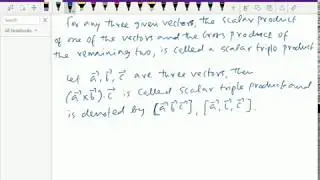 All Notebooks
For any three given vectors, the scalar product
of one of the vectors and the cross produce of
the remaining two, is called a scalar triple product
Let a⃗, b⃗, c⃗ are three vectors, then
(a⃗ × b⃗). c⃗ is called scalar triple product and
is denoted by [a⃗ b⃗ c⃗], [a⃗, b⃗, c⃗].